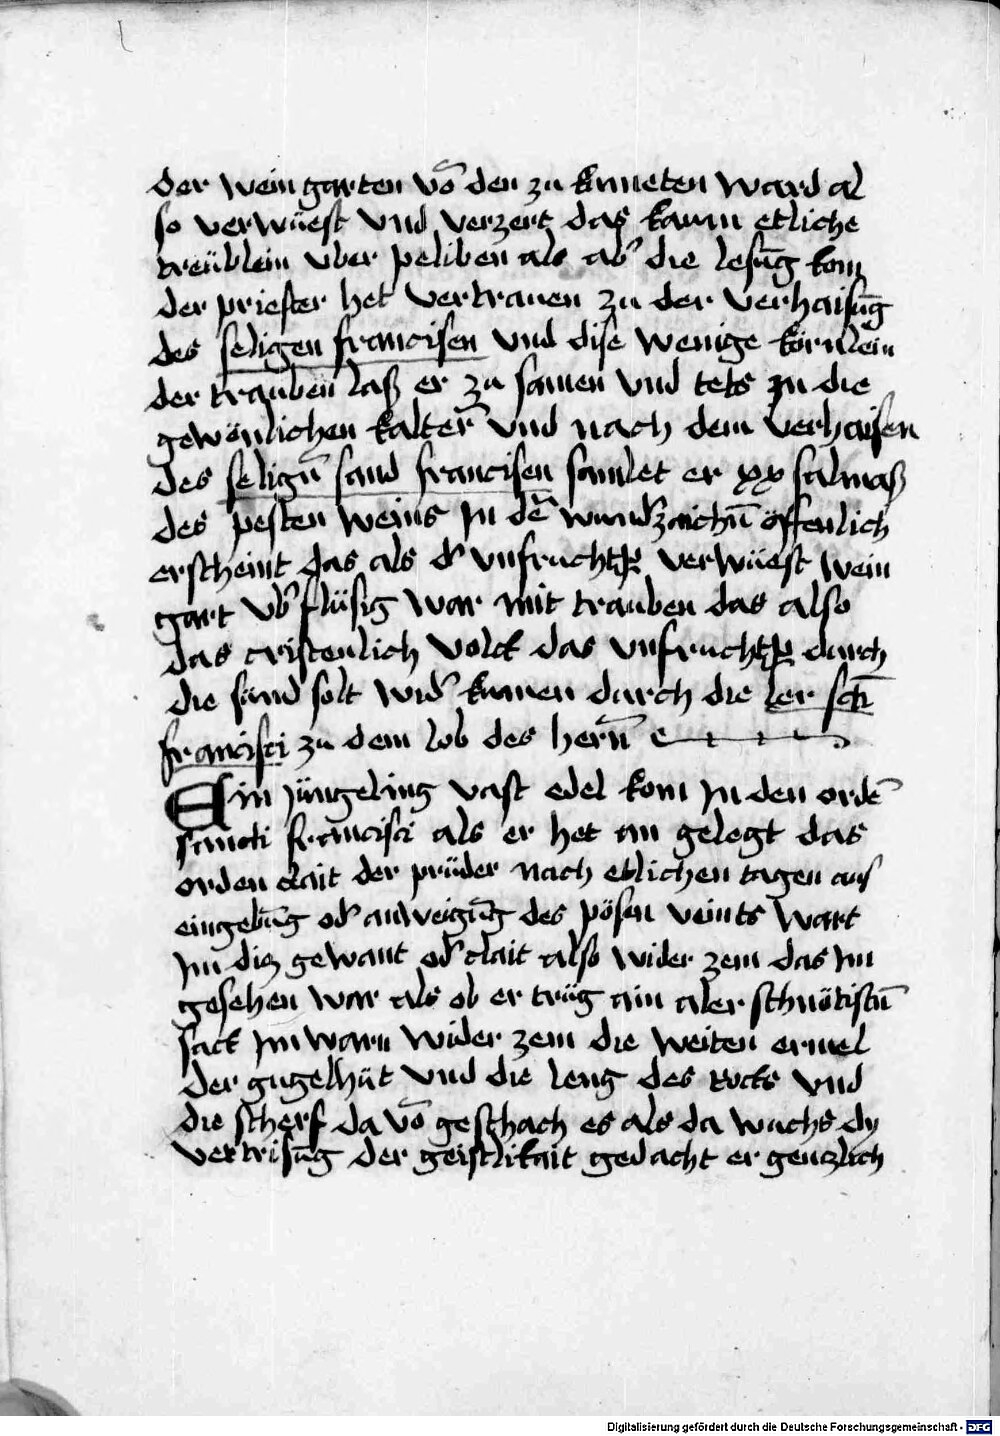 der weingarten võ den zu kumeten ward al
so verwüest vnd verzert das kaum etliche
treüblein vber peliben als ab͛ die lesũg kom
der priester het vertrauen zu der verhaisũg
des seligen francisen vnd dise wenige körnlein
der trauben laß er zu samen vnd tets zu die
gewönlichen kalter̃ vnd nach dem verhaisen
des selign̄ sand francisen samlet er xx salmaß
des pesten weins Jn dẽ wund͛zaichn̄ öffenlich
erscheint das als d͛ vnfruchtp͛ verwüest wein
gart vb͛flüsig war mit trauben das also
das cristenlich volck das vnfruchtp͛ durch
die sünd solt wid͛ kumen durch die ler scti̅
francisci zu dem lob des hern̄
Ein jüngeling vast edel kom Jn den ordẽ
sancti francisci als er het an gelegt das
orden clait der prüder nach etlichen tagen aus
eingebũg od͛ anweigũg des pösen veints wart
Jm diz gewant od͛ clait also wider zem das Jm
gesehen war als ob er trüg ain aler schnötistn̄
sack Jm warn wider zem die weiten ermel
der gugelhüt vnd die leng des rocks vnd
die scherf da võ geschach es als da wuchs dy
vertrisũg der geistlikait gedacht er genczlich
Digitalisierung gefördert durch die Deutsche Forschungsgemeinschaft - DFG